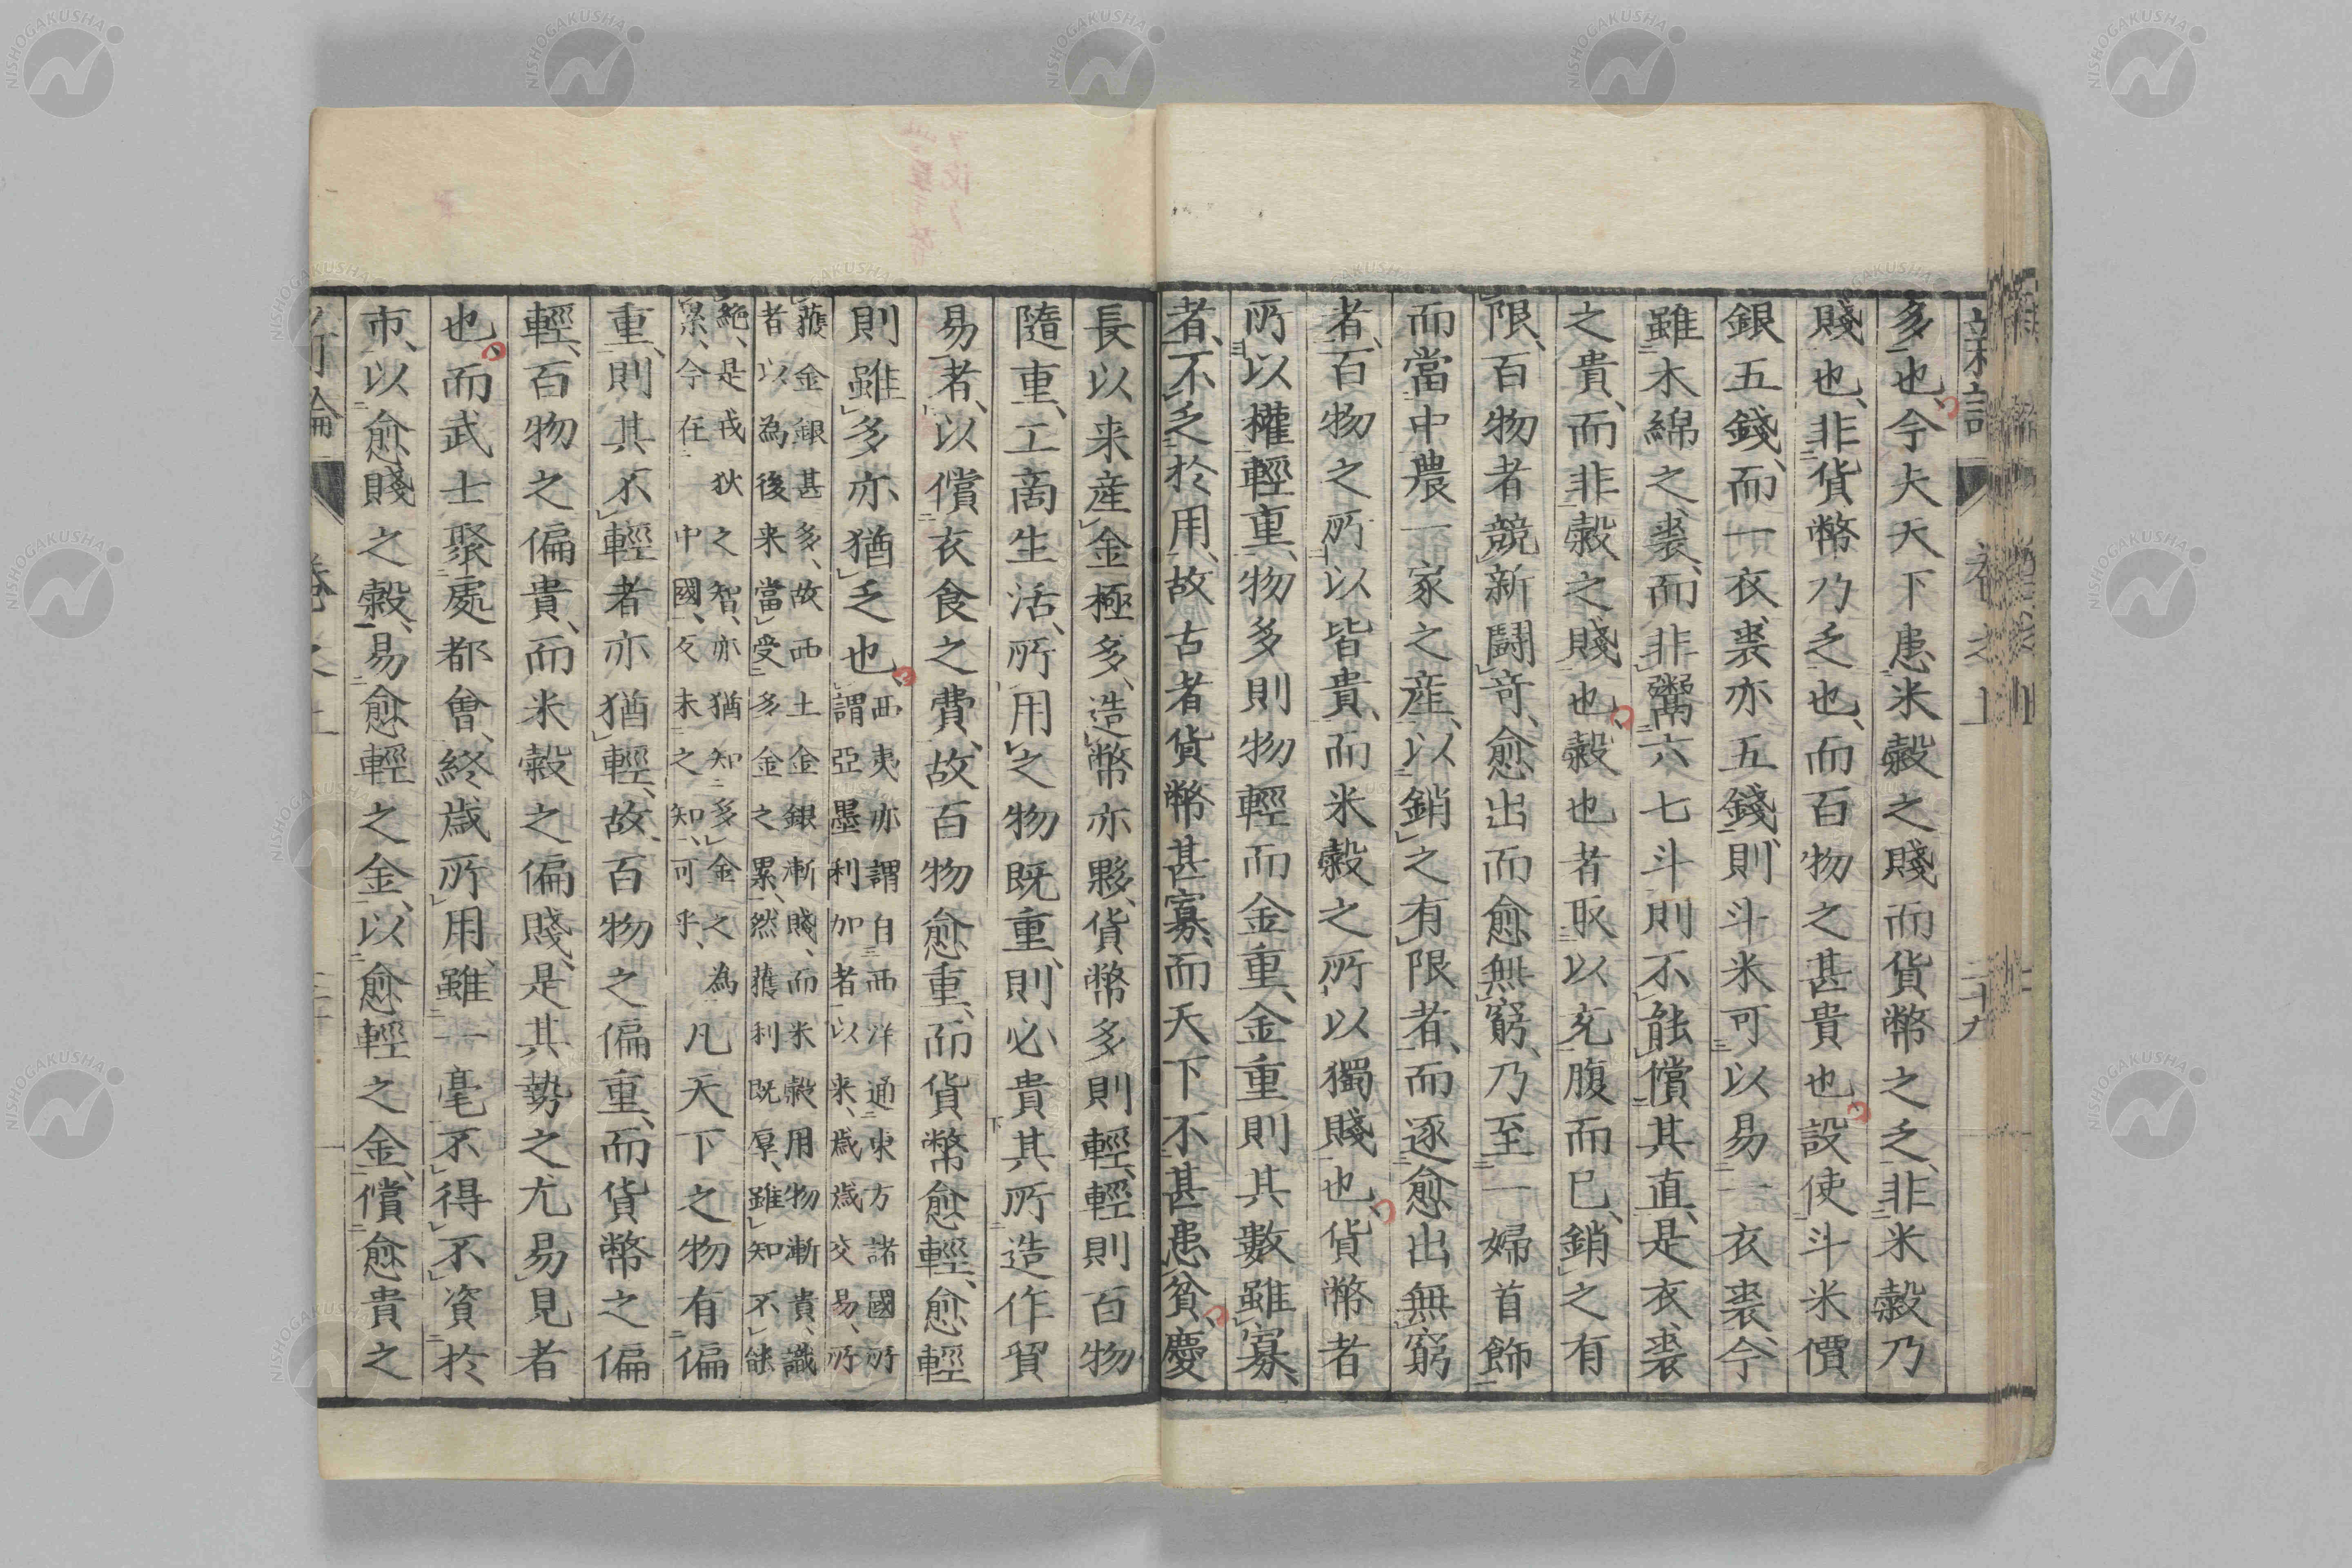 多也、今夫天下患米穀之賤而貨幣之乏、非米穀乃
賤也、非貨幣乃乏也、而百物之甚貴也、設使斗米價
銀五錢、而一衣裘亦五錢、則斗米可以易一衣裘、今
雖木綿之裘、而非鬻六七斗則不能償其直、是衣裘
之貴、而非穀之賤也、穀也者取以充腹而已、銷之有
限、百物者競新鬪奇、愈出而愈無窮、乃至一婦首飾
而當中農一家之産、以銷之有限者、而逐愈出無窮
者、百物之所以皆貴、而米穀之所以獨賤也、貨幣者
所以權輕重、物多則物輕而金重、金重則其數雖寡、
者、不乏於用、故古者貨幣甚寡、而天下不甚患貧、慶
長以来産金極多、造幣亦夥、貨幣多則輕、輕則百物
隨重、工商生活、所用之物既重、則必貴其所造作貿
易者、以償衣食之費、故百物愈重、而貨幣愈輕、愈輕
則雖多亦猶乏也、西夷亦謂自西洋通東方諸國所
謂亞墨利加者以来、歳歳交易、所
獲金銀甚多、故西土金銀漸賤、而米穀用物漸貴、識
者以為後来當受多金之累、然獲利既厚、雖知不能
絶、是戎狄之智、亦猶知多金之為
累、今在中國、反未之知、可乎、凡天下之物有偏
重、則其不輕者亦猶輕、故百物之偏重、而貨幣之偏
輕、百物之偏貴、而米穀之偏賤、是其勢之尤易見者
也、而武士聚處都會、終歳所用、雖一毫不得不資於
市、以愈賤之穀、易愈輕之金、以愈輕之金、償愈貴之